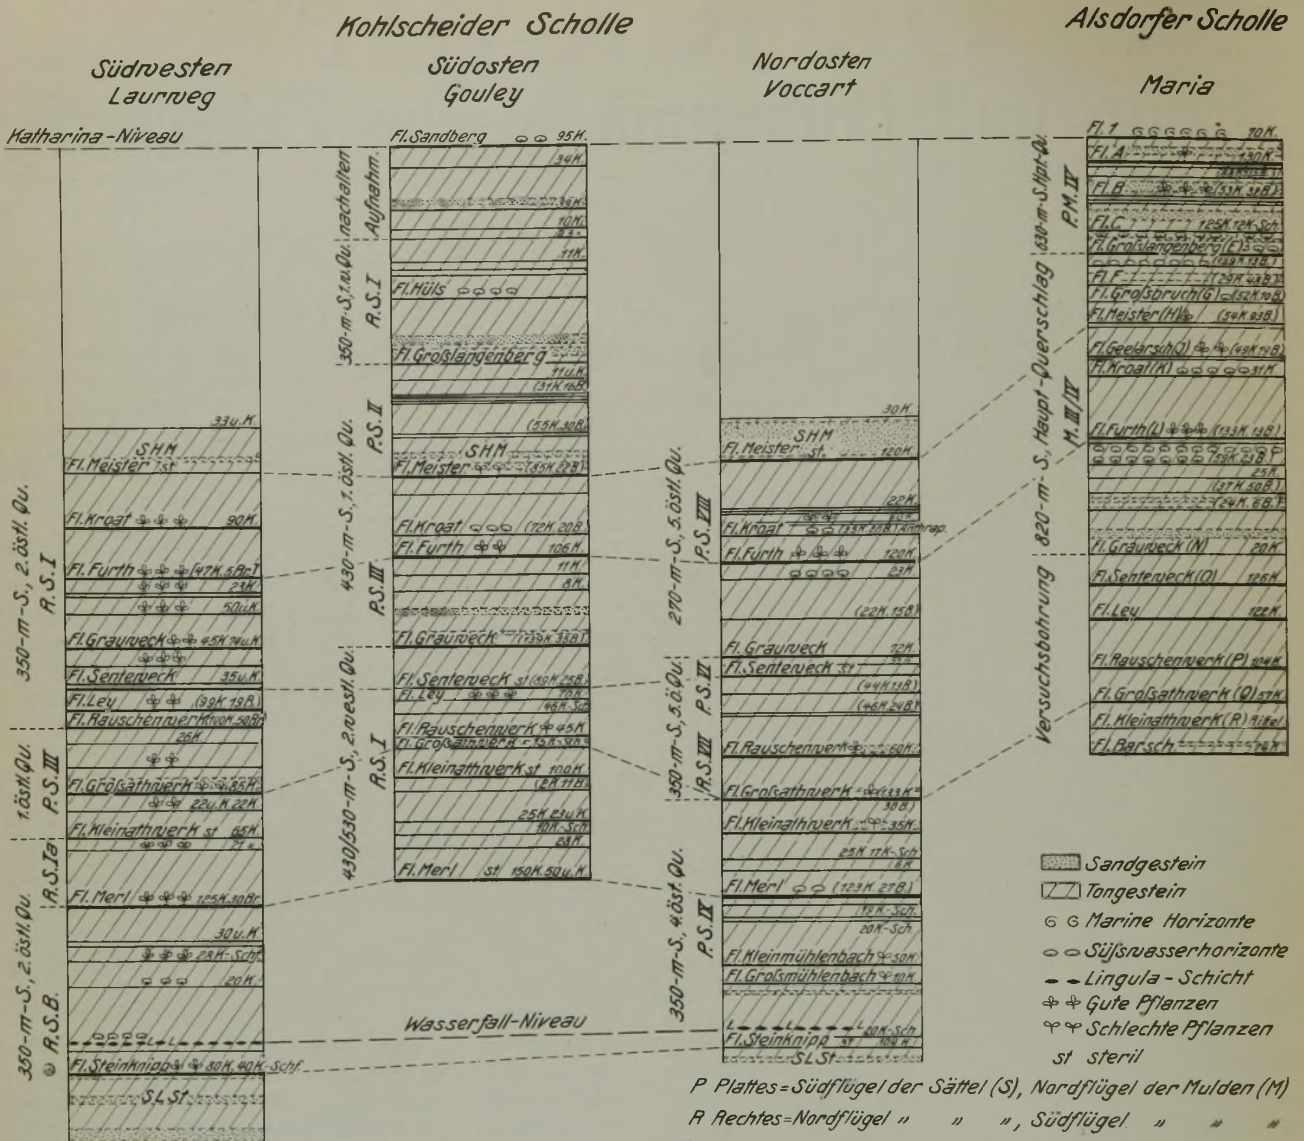 Kohlscheider Scholle
Alsdorfer Scholle
Südwesten
Laurweg
Südosten
Gouley
Nordosten
Voccart
Maria
Katharina-Niveau
350-m-S., 2.östl.Qu.
R.S.I
1.östl.Qu.
P.S.III
R.S.Ia
350-m-S., 2.östl.Qu.
R.S.B.
33u.K.
SHM
Fl.Meister st
Fl.Kroat 90K.
Fl.Furth (47K.5Br.)
23K.
50u.K.
Fl.Grauweck 45K.74u.K.
Fl.Senteweck 35u.K.
Fl.Ley (99K.19B.)
Fl.Rauschenwerk
26K.
Fl.Großathwerk 85K.
22u.K.22K.
Fl.Kleinathwerk st 65K.
Fl.Merl 125K.30Br
30u.K
28K-Schf.
20K.
L L
Fl.Steinknipp 80K.40K-Schf.
S.L.St.
350-m-S., 1.w.Qu. nach alten Aufnahm.
R.S.I
430-m-S., 1.östl.Qu.
P.S.II
P.S.III
430/530-m-S., 2.westl.Qu.
R.S.I
Fl.Sandberg 95K.
34K.
10K.
11K.
Fl.Hüls
Fl.Großlangenberg
11u.K.
(31K.16B.)
(55K.30B.)
SHM
Fl.Meister (85K.22B.)
Fl.Kroat (72K.20B.)
Fl.Furth 106K.
11K.
8K.
Fl.Grauweck (139K.35B.)
Fl.Senteweck st (89K.25B.)
Fl.Ley 70K.
46K-Sch
Fl.Rauschenwerk 45K
Fl.Großathwerk
Fl.Kleinathwerk st 100K.
(2K.11B.)
25K.23u.K
10K-Sch
28K.
Fl.Merl st 150K.50u.K.
Wasserfall-Niveau
270-m-S., 5.östl.Qu.
P.S.VIII
350-m-S., 5.ö.Qu.
R.S.VII P.S.VI
350-m-S., 4.öst.Qu.
P.S.IV
30K.
SHM
Fl.Meister st. 120K.
22K.
Fl.Kroat
Fl.Furth 120K
23K
(22K.15B.)
Fl.Grauweck 72K.
Fl.Senteweck st
(44K.13B.)
(46K.24B.)
Fl.Rauschenwerk 60K.
Fl.Großathwerk (133K.
30B.)
Fl.Kleinathwerk 35K.
25K 17K-Sch
6K
Fl.Merl (123K.27B.)
19K-Sch.
20K-Sch
Fl.Kleinmühlenbach 50K
Fl.Großmühlenbach 10K.
L L L 20K-Sch
Fl.Steinknipp st
S.L.St.
630-m-S.Hpt-Qu.
P.M.IV
820-m-S., Haupt-Querschlag
M.III/IV
Versuchsbohrung
Fl.1 70K.
Fl.A 130K.
Fl.B (53K.32B.)
Fl.C 125K.12K-Sch
Fl.Großlangenberg(E)
(139K.13B.)
Fl.F (29K.48B.)
Fl.Großbruch(G) (52K.10B.)
Fl.Meister(H) (54K.93B.)
Fl.Geelarsch(J) (49K.19B)
Fl.Kroat(K) 31K
Fl.Furth(L) (133K.13B.)
(59K.23B.)
25K
(37K.50B.)
(24K.6B.)
Fl.Grauweck(N) 20K
Fl.Senteweck(O) 126K.
Fl.Ley 122K
Fl.Rauschenwerk(P) 104K
Fl.Großathwerk(Q) 57K
Fl.Kleinathwerk(R) Riffel
Fl.Barsch
Sandgestein
Tongestein
Marine Horizonte
Süßwasserhorizonte
Lingula-Schicht
Gute Pflanzen
Schlechte Pflanzen
st steril
P Plattes=Südflügel der Sättel (S), Nordflügel der Mulden (M)
R Rechtes=Nordflügel " " ", Südflügel " " "